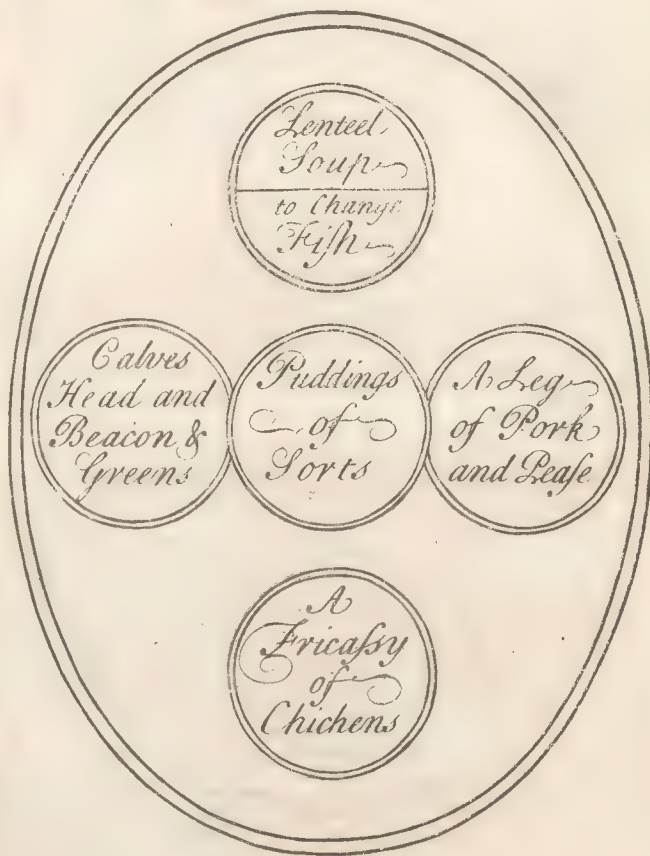 Lenteel
Soup
to Change
Fiſh
Calves
Head and
Beacon &
Greens
Puddings
of
Sorts
A Leg
of Pork
and Peaſe
A
Fricaſsy
of
Chichens